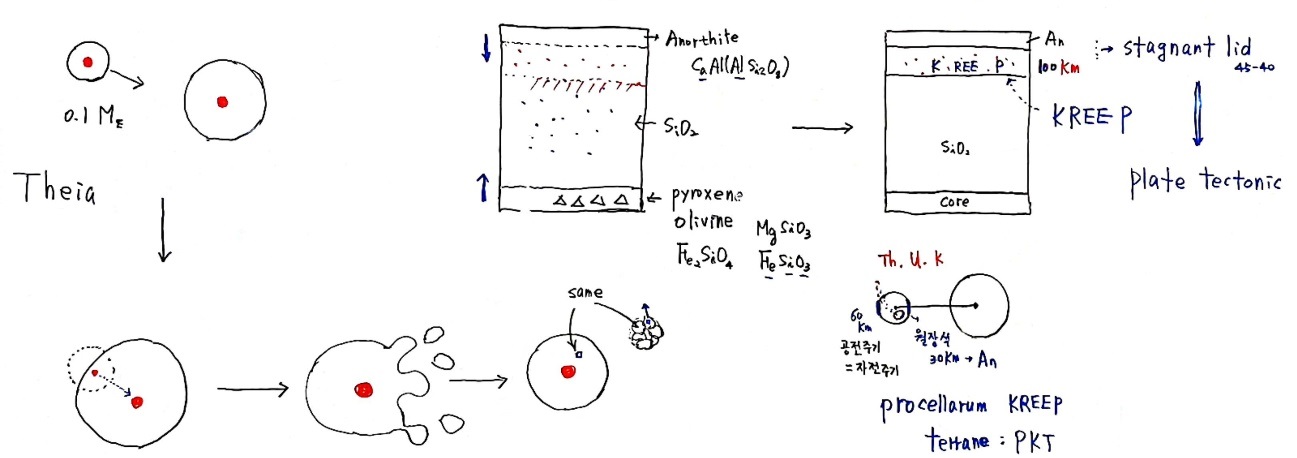 0.1 M_E
Theia
same
Anorthite
CaAl(AlSi2O8)
SiO2
pyroxene
olivine
MgSiO3
Fe2SiO4
FeSiO3
An
100 Km
K REE P
KREEP
SiO2
Core
stagnant lid
45-40
plate tectonic
Th. U. K
60 Km
공전주기
= 자전주기
월장석
30Km → An
procellarum KREEP
terrane : PKT